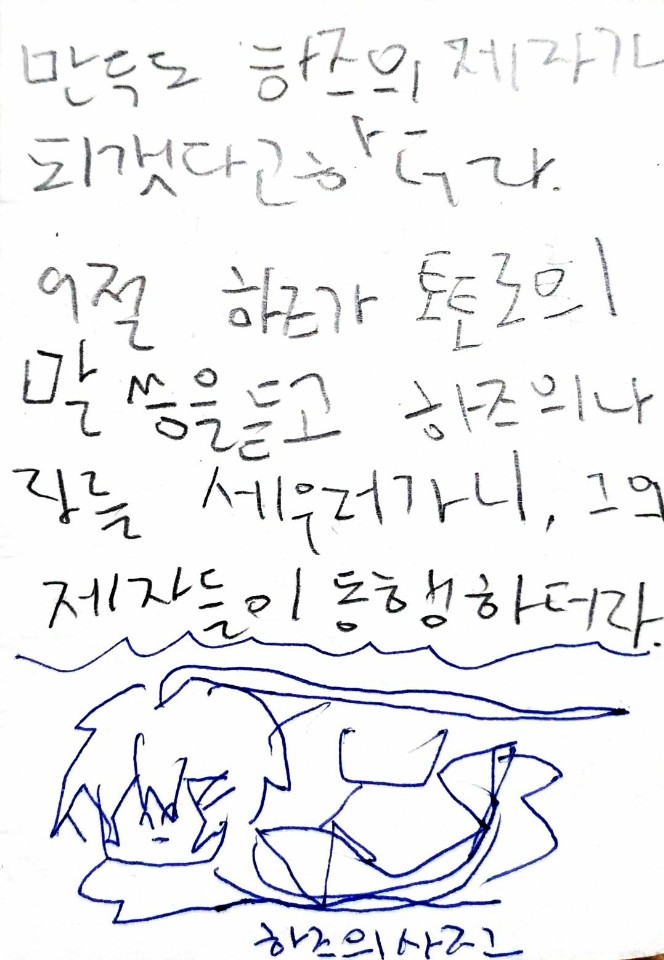 만득도 하즈의 제자가
되겟다고하더라.
9절 하즈가 토토로의
말씅을듣고 하즈의나
라를 세우러가니, 그의
제자들이 동행하더라.
하즈의사고